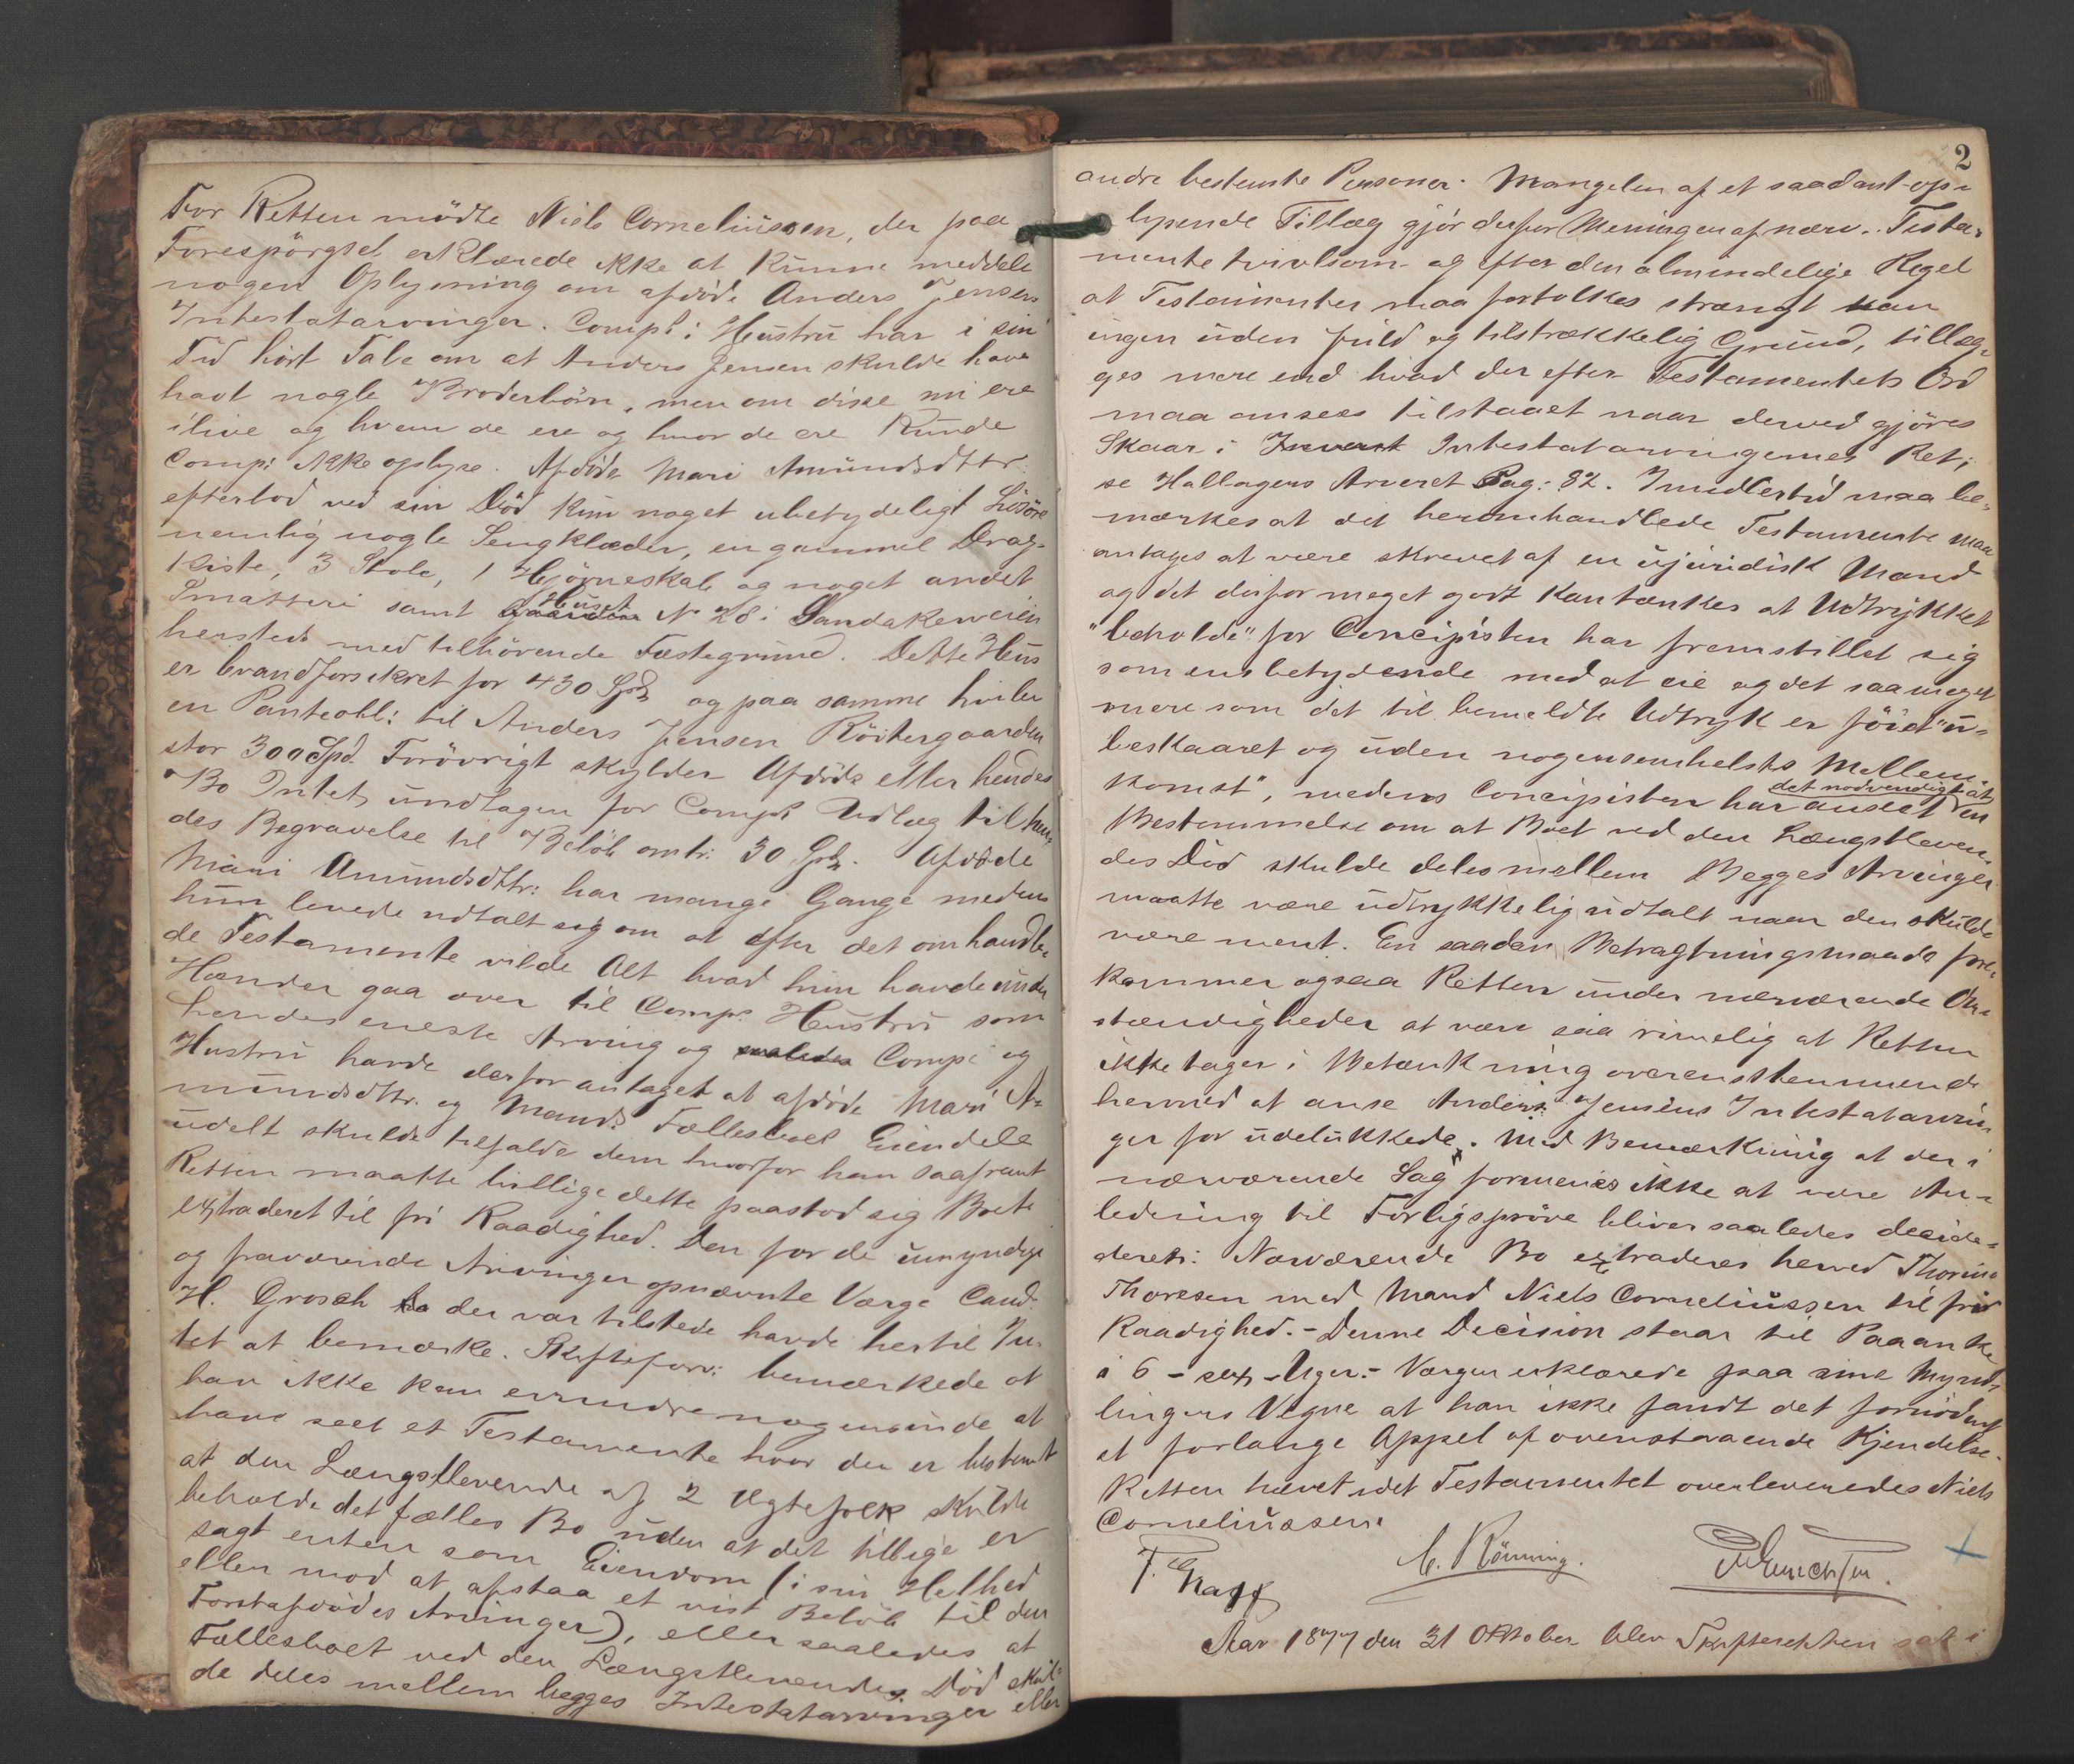 For Retten mödte Niels Corneliussen, der paa
Forespörgsel erklærede ikke at kunne meddele
nogen Oplysning om afdöde Anders Jensens
Intestatarvinger. Compt: Hustru har i sin
Tid hört Tale om at Anders Jensen skulde have
havt nogle Broderbörn, men om disse nu ere
ilive og hvem de ere og hvor de ere kunde
Comp: ikke oplyse. Afdöde Mari Amundsdttr.
efterlod ved sin Död kun noget ubetydeligt Lösöre
nemlig nogle Sengklæder, en gammel Drag-
kiste, 3 Stole, 1 Hjörneskab og noget andet
Smatteri samt Gaarden Huset No 28 i Sandakerveien
hersteds med tilhörende Fæstegrund. Dette Hus
er brandforsikret for 430 Spd og paa samme hviler
en Panteobl: til Anders Jensen Röstergaarden
stor 300 Spd. Forövrigt skylder Afdöde eller hendes
Bo Intet, undtagen for Comps Udlæg til hen-
des Begravelse til Belöb omtr: 30 Spd. Afdöde
Mari Amundsdttr: har mange Gange medens
hun levede udtalt sig om at efter det omhandle-
de Testamente vilde Alt hvad hun havde under
Hænder gaa over til Comps Hustru som
hendes eneste Arving og saaledes Comp: og
Hustru havde derfor antaget at afdöde Mari A-
mundsdttr. og Mands Fællesboes Eiendele
udelt skulde tilfalde dem hvorfor han saafremt
Retten maatte billige dette paastod sig Boet
extraderet til fri Raadighed. Den for de umyndige
og fraværende Arvinger opnævnte Værge Cand.
H. Grosch der var tilstede havde hertil In-
tet at bemærke. Skifteforv: bemærkede at
han ikke kan erindre nogensinde at
have seet et Testamente hvor der er bestemt
at den Længstlevende af 2 Ægtefolk skulde
beholde det fælles Bo uden at det tillige er
sagt enten som Eiendom (i sin Helhed
eller mod at afstaa et vist Belöb til den
Förstafdödes Arvinger), eller saaledes at
Fællesboet ved den Længstlevendes Död skul-
de deles mellem begges Intestatarvinger eller
2
andre bestemte Personer. Mangelen af et saadant op-
lysende Tillæg gjör derfor Meningen af nærv. Testa-
mente tvivlsom og efter den almindelige Regel
at Testamenter maa fortolkes strængt kan
ingen uden fuld og tilstrækkelig Grund, tillæg-
ges mere end hvad der efter Testamentets Ord
maa ansees tilstaaet naar derved gjöres
Skaar i Intestatarvingernes Ret;
se Hallagers Arveret Pag: 82. Imidlertid maa be-
mærkes at det heromhandlede Testamente maa
antages at være skrevet af en ujuridisk Mand
og det derfor meget godt kan tænkes at Udtrykket
"beholde" for Concipisten har fremstillet sig
som ensbetydende med at eie og det saameget
mere som det til bemeldte Udtryk er föiet "u-
beskaaret og uden nogensomhelsts Mellem-
komst", medens Concipisten har anseet det nödvendigt at en
Bestemmelse om at Boet ved den Længstleven-
des Död skulde deles mellem Begges Arvinger
maatte være udtrykkelig udtalt naar den skulde
være ment. En saadan Betragtningsmaade fore-
kommer ogsaa Retten under nærværende Om-
stændigheder at være saa rimelig at Retten
ikke tager i Betænkning overensstemmende
hermed at anse Anders Jensens Intestatarvin-
ger for udelukkede. Med Bemærkning at der i
nærværende Sag formenes ikke at være An-
ledning til Forligspröve bliver saaledes decide-
deret: Nærværende Bo extraderes herved Thorine
Thoresen med Mand Niels Corneliussen til fri
Raadighed. - Denne Decision staar til Paaanke
i 6 - sex - Uger. - Værgen erklærede paa sine Mynd-
lingers Vegne at han ikke fandt det fornödent
at forlange Appel af ovenstaaende Kjendelse.
Retten hævet idet Testamentet overleveredes Niels
Corneliussen.
C. Rönning.
Aar 1877 den 31 Oktober blev Skifteretten sat i